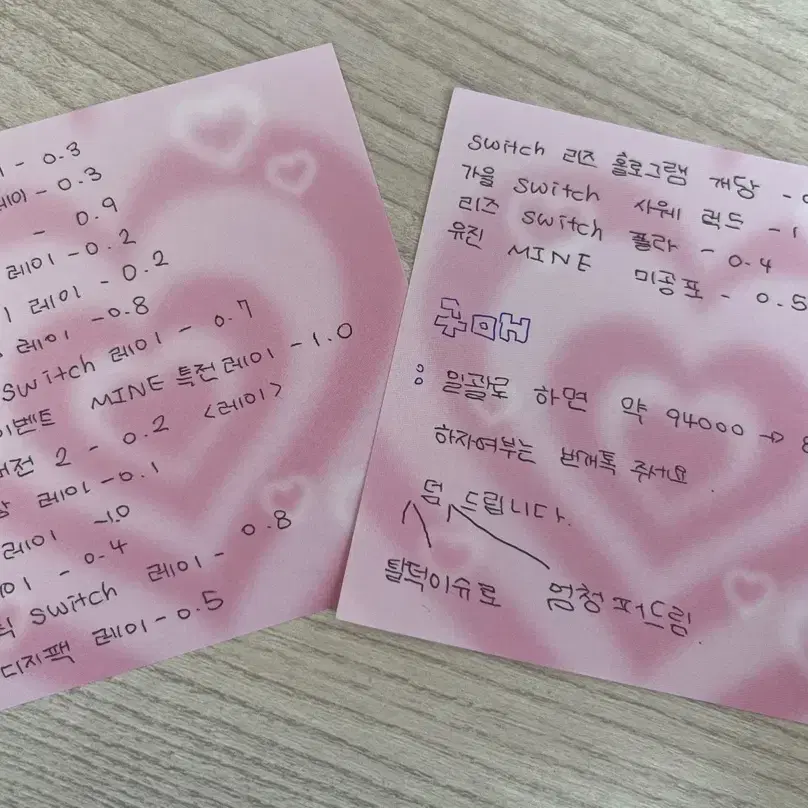 - 0.3
레이 - 0.3
- 0.9
레이 - 0.2
레이 - 0.2
레이 - 0.8
Switch 레이 - 0.7
이벤트 MINE 특전 레이 - 1.0
버전 2 - 0.2 <레이>
레이 - 0.1
레이 - 1.0
- 0.4
Switch 레이 - 0.8
디지팩 레이 - 0.5
Switch 리즈 홀로그램 개당 -
가을 Switch 사웨 럭드 - 1
리즈 Switch 폴라 - 0.4
유진 MINE 미공포 - 0.5
구매
: 일괄로 하면 약 94000 →
하자여부는 번개톡 주세요.
덤 드립니다.
탈덕이슈로 엄청 퍼드림.